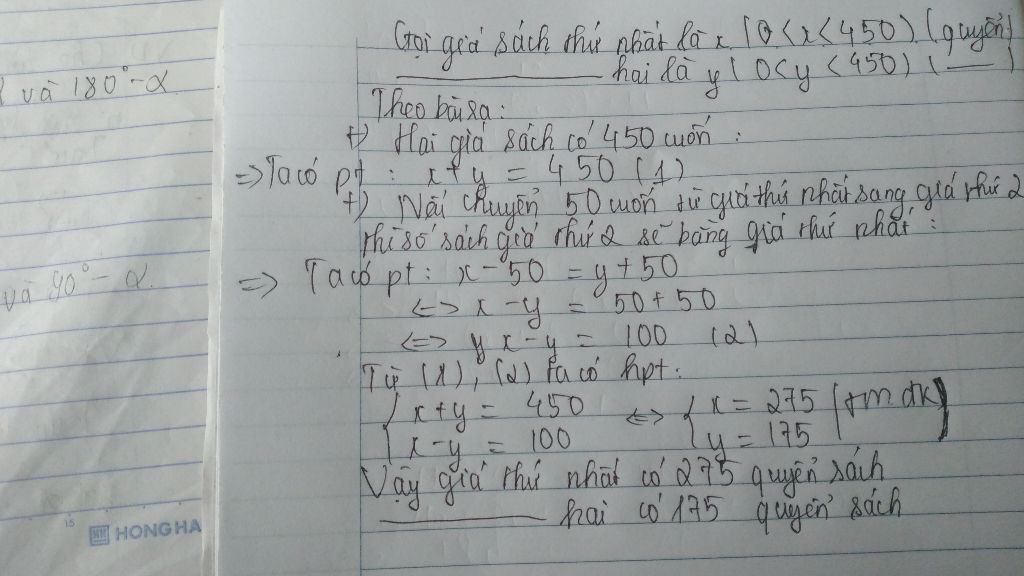 và 180° - α
và 90° - α.
HONG HA
Gọi giá sách thứ nhất là x (0 < x < 450) (quyển)
hai là y (0 < y < 450) ( )
Theo bài ra:
+) Hai giá sách có 450 cuốn :
=> Ta có pt : x + y = 450 (1)
+) Nếu chuyển 50 cuốn từ giá thứ nhất sang giá thứ 2
thì số sách giá thứ 2 sẽ bằng giá thứ nhất :
=> Ta có pt : x - 50 = y + 50
<=> x - y = 50 + 50
<=> y x - y = 100 (2)
Từ (1), (2) ta có hpt:
{ x + y = 450 <=> { x = 275 (tm đk)
{ x - y = 100 { y = 175
Vậy giá thứ nhất có 275 quyển sách
hai có 175 quyển sách